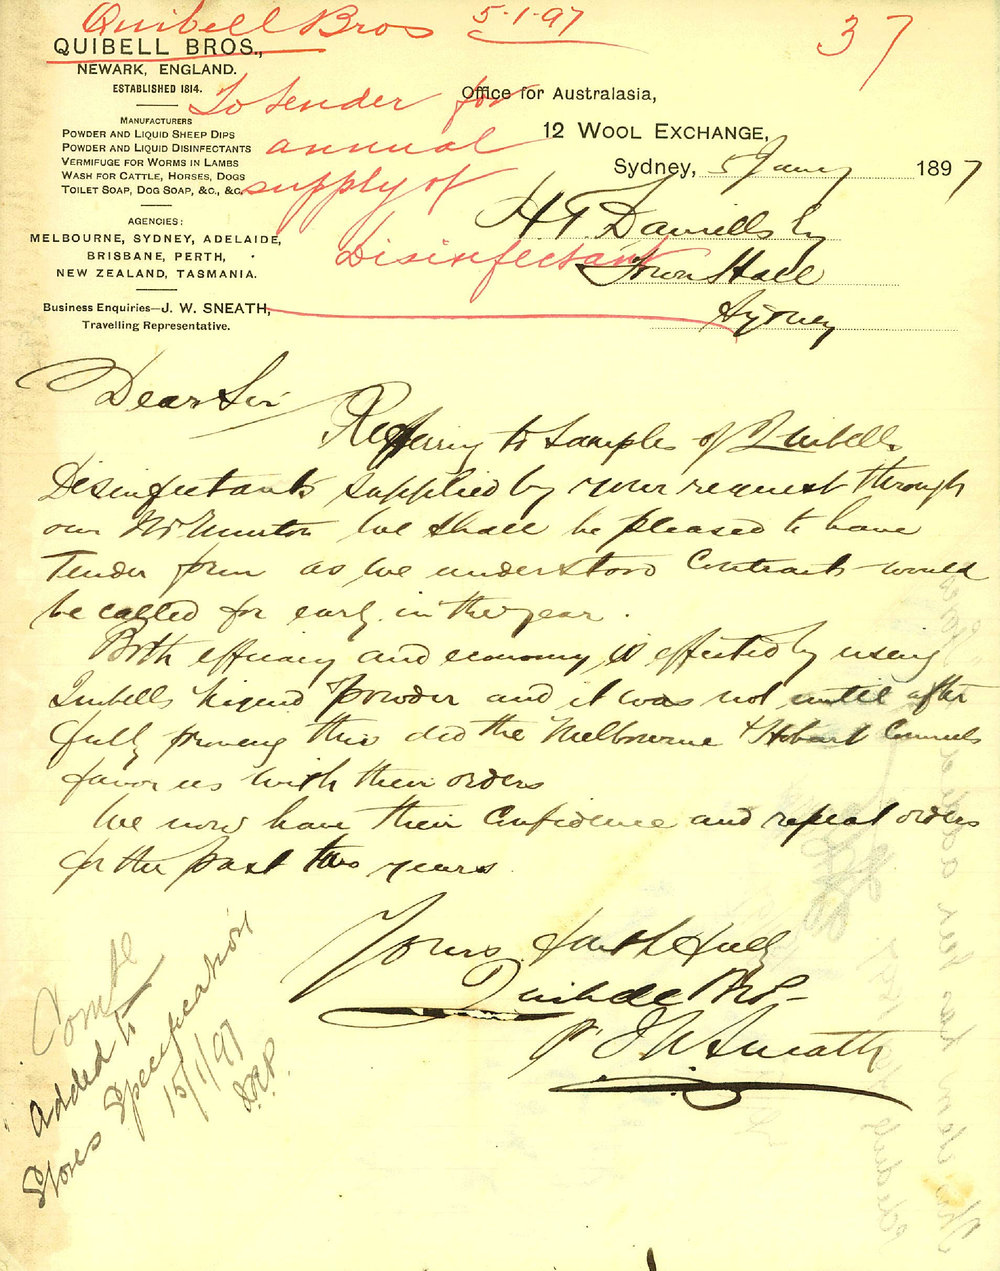 Quibell Bros 5-1-97 37
QUIBELL BROS.,
NEWARK, ENGLAND.
ESTABLISHED 1814.
To tender for
annual
supply of
Disinfectant
MANUFACTURERS
POWDER AND LIQUID SHEEP DIPS
POWDER AND LIQUID DISINFECTANTS
VERMIFUGE FOR WORMS IN LAMBS
WASH FOR CATTLE, HORSES, DOGS
TOILET SOAP, DOG SOAP, &C., &C.
AGENCIES:
MELBOURNE, SYDNEY, ADELAIDE,
BRISBANE, PERTH,
NEW ZEALAND, TASMANIA.
Business Enquiries—J. W. SNEATH,
Travelling Representative.
Office for Australasia,
12 WOOL EXCHANGE,
Sydney, 5 Jany 1897
H. T. Daniells Esq
Town Hall
Sydney
Dear Sir
Referring to samples of Quibells
Disinfectants supplied by your request through
our Mr Munton we shall be pleased to have
Tender form as we understood Contracts would
be called for early in the year.
Both efficacy and economy is effected by using
Quibells Powder and it was not until after
fully proving this did the Melbourne & Hobart Councils
favor us with their orders
We now have their confidence and repeat orders
for the past two years
Yours faithfully
Quibell Bros
pr J W Sneath
Added to
Stores Specification
15/1/97